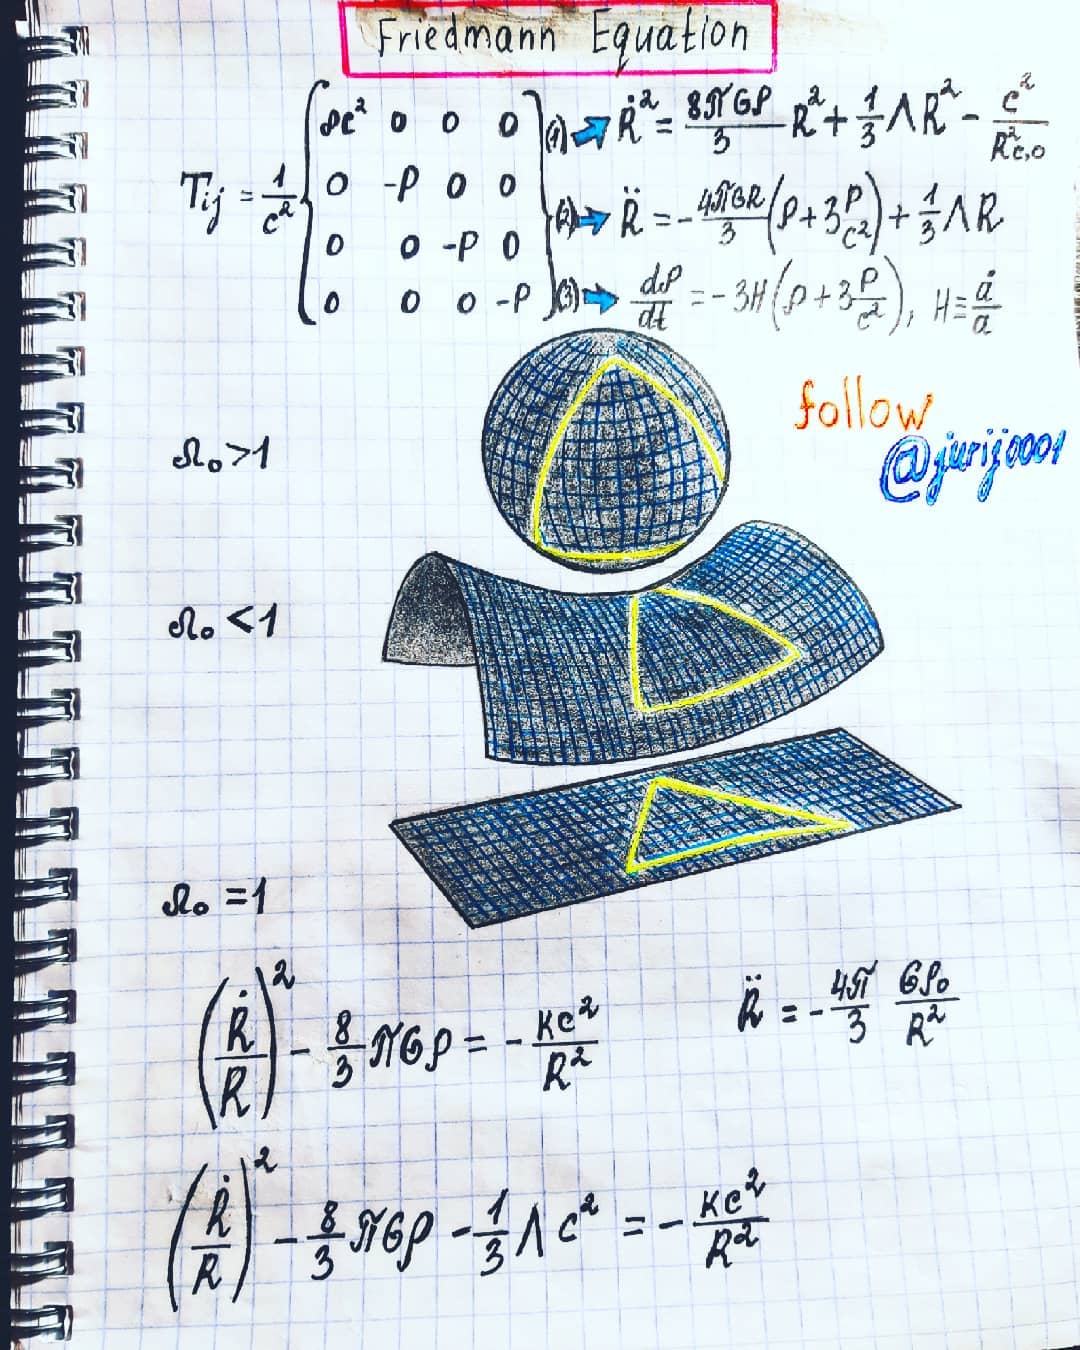 Friedmann Equation
T_ij = 1/c² { ρc² 0 0 0
0 -P 0 0
0 0 -P 0
0 0 0 -P }
(1) Ṙ² = 8πGρ/3 R² + 1/3 ΛR² - c²/R²c,0
(2) R̈ = - 4πGR/3 (ρ + 3P/c²) + 1/3 ΛR
(3) dρ/dt = -3H(ρ + 3P/c²), H ≡ ȧ/a
follow
@jurij0001
Ω₀ > 1
Ω₀ < 1
Ω₀ = 1
(Ṙ/R)² - 8/3 πGρ = - kc²/R²
R̈ = - 4π/3 Gρ₀/R²
(Ṙ/R)² - 8/3 πGρ - 1/3 Λc² = - kc²/R²